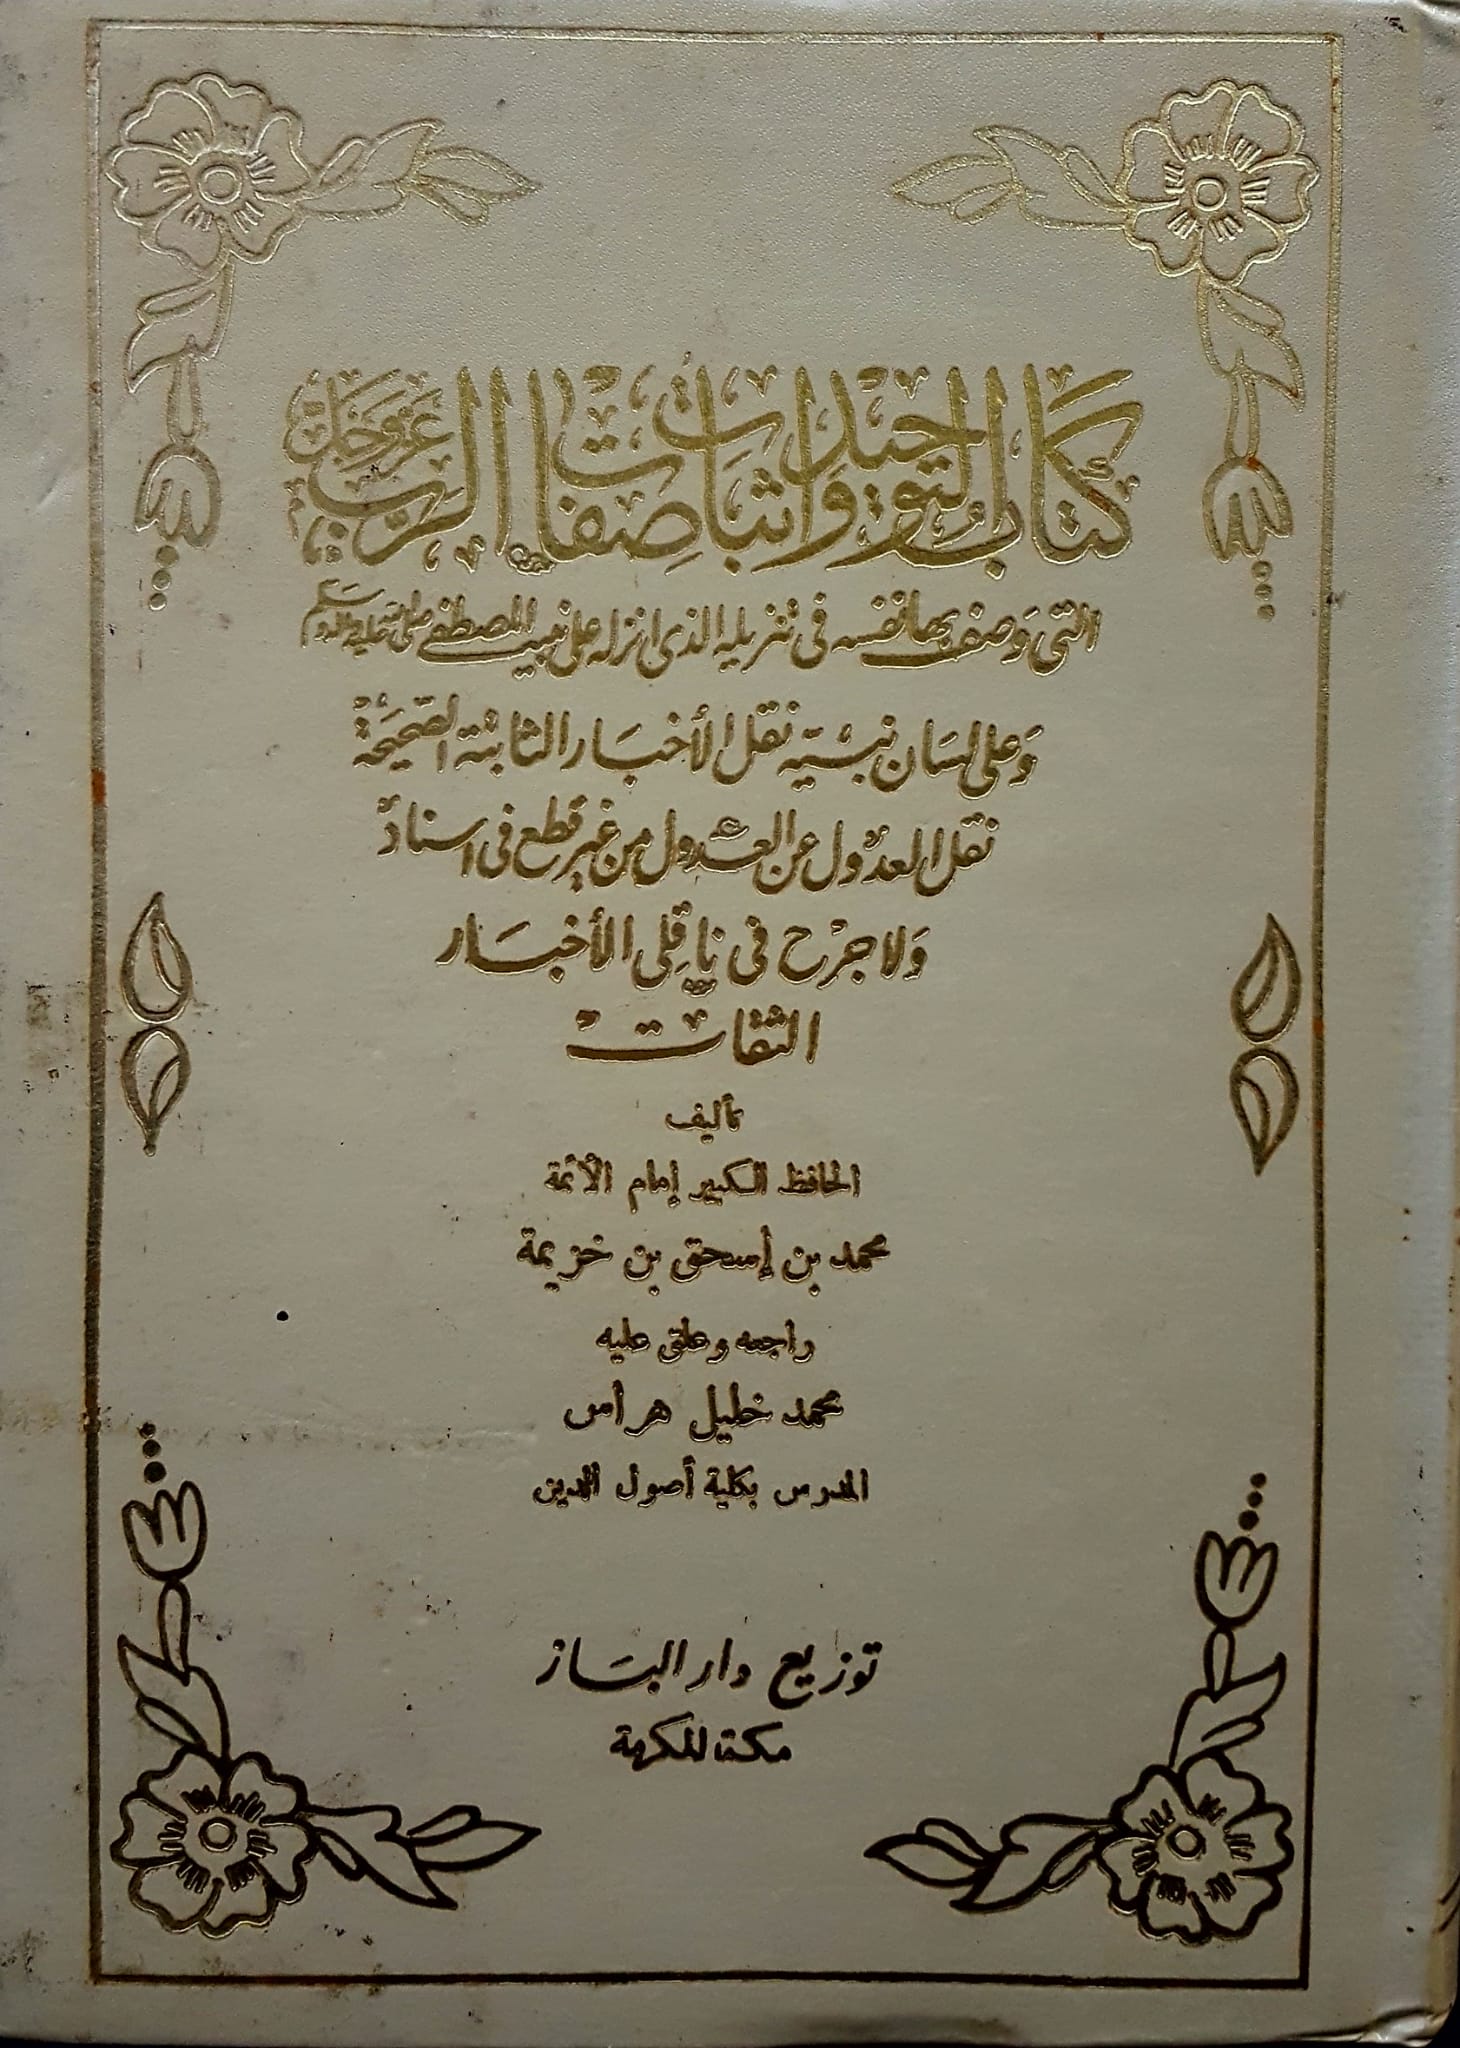 كتاب التوحيد واثبات صفات الرب عز وجل
التى وصف بها نفسه فى تنزيله الذى انزله على نبيه المصطفى صلى الله عليه وسلم
وعلى لسان نبيه نقل الأخبار الثابتة الصحيحة
نقل العدول عن العدول من غير قطع فى اسناد
ولا جرح فى ناقلى الأخبار
الثقات
تأليف
الحافظ الكبير إمام الأئمة
محمد بن إسحق بن خزيمة
راجعه وعلق عليه
محمد خليل هراس
المدرس بكلية أصول الدين
توزيع دار الباز
مكة المكرمة